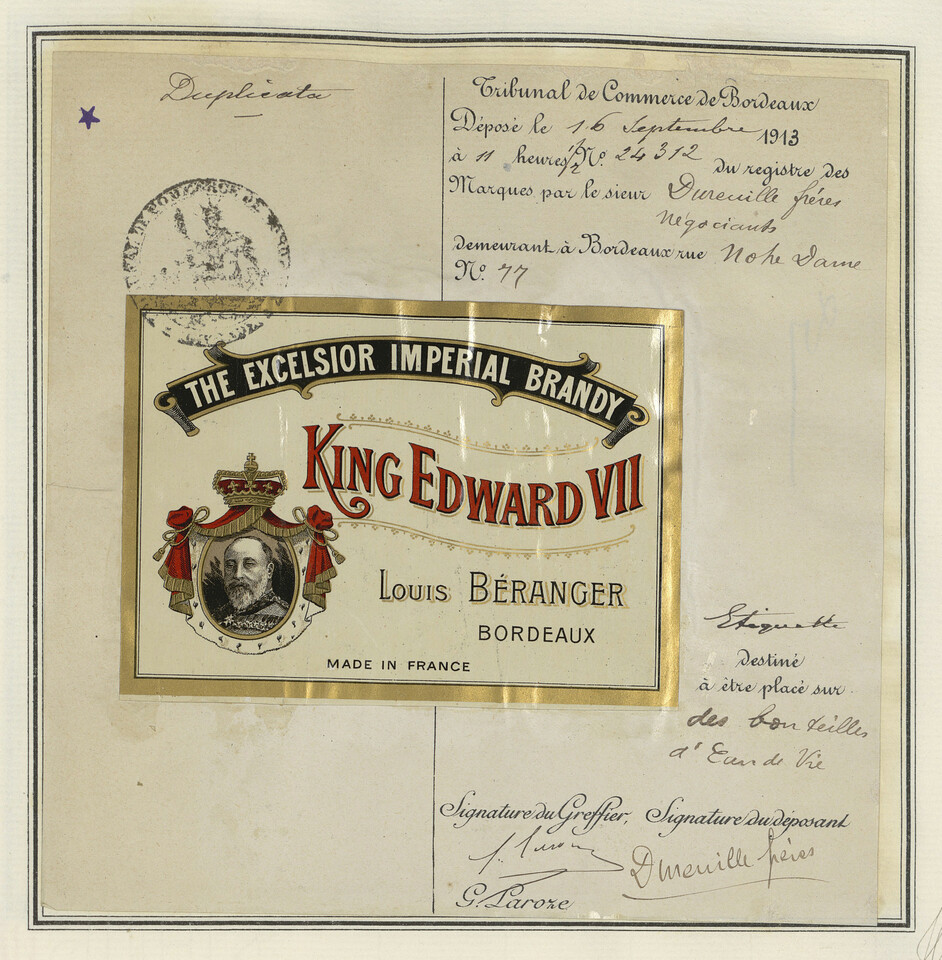 Duplicata
Tribunal de Commerce de Bordeaux
Déposé le 16 Septembre 1913
à 11 heures 1/2 No. 24312 du registre des
Marques par le sieur Dureuille frères
négociants
demeurant à Bordeaux rue Notre Dame
No. 77
THE EXCELSIOR IMPERIAL BRANDY
KING EDWARD VII
LOUIS BÉRANGER
BORDEAUX
MADE IN FRANCE
Etiquette
destiné
à être placé sur
des bouteilles
d'Eau de Vie
Signature du Greffier, Signature du déposant
Dureuille frères
G. Laroze